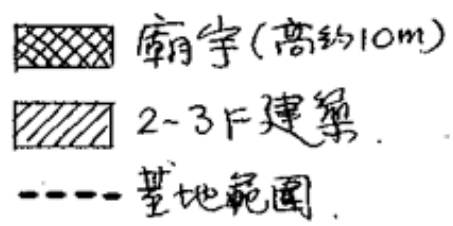 廟宇(高約10m)
2~3F建築.
基地範圍.